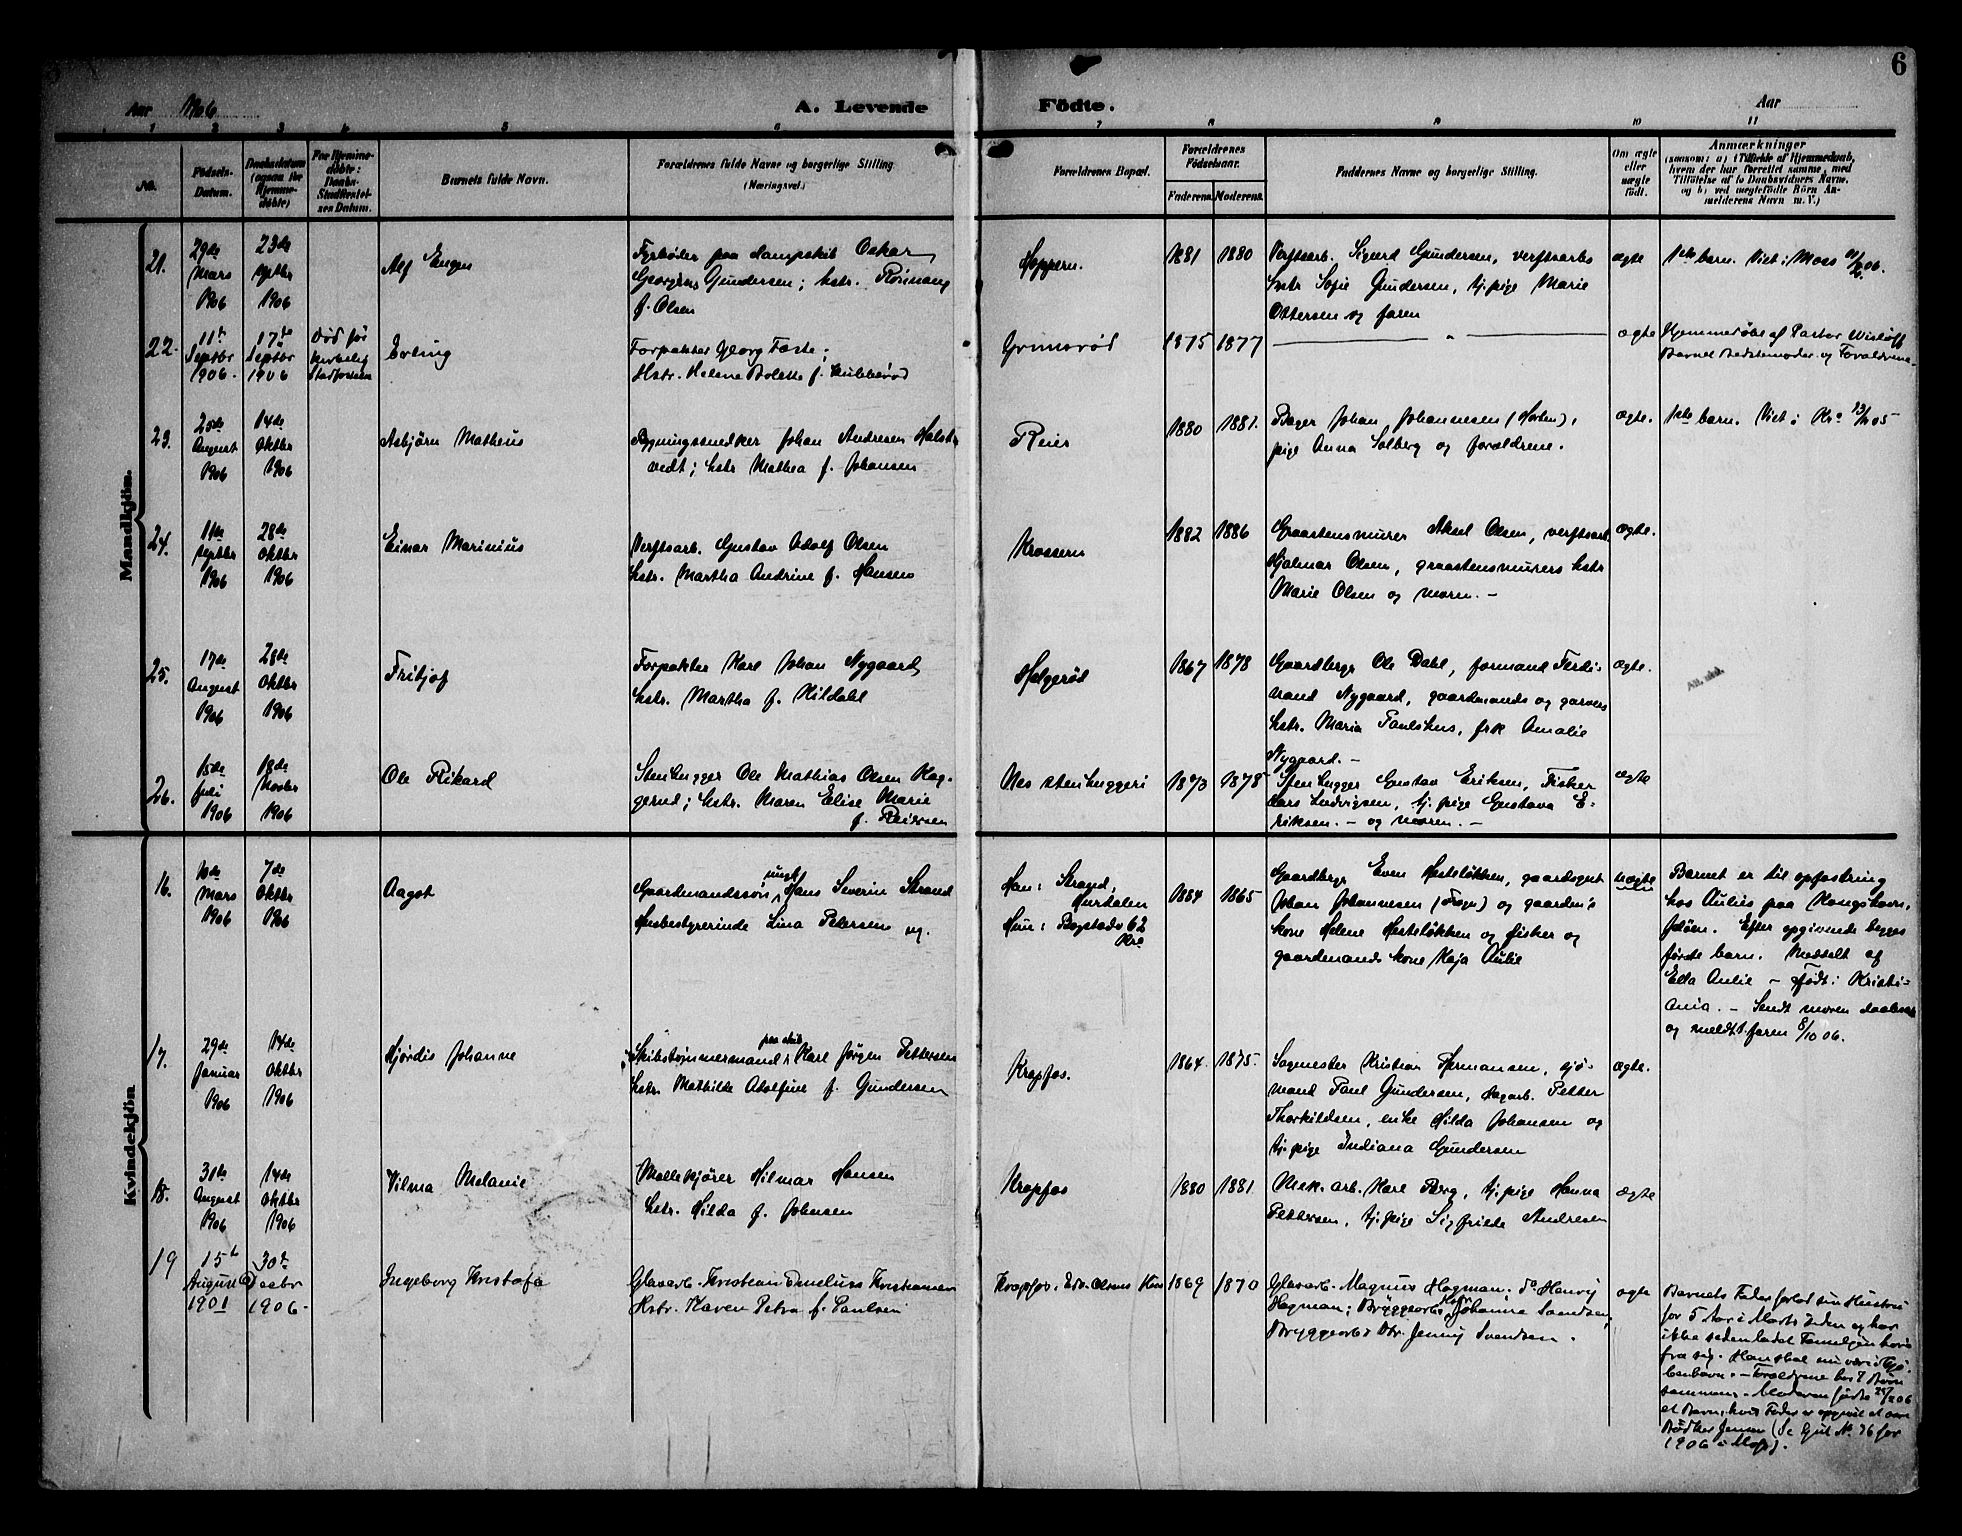 6
Aar 1906
A. Levende
Födte.
Aar
1 2 3 4 5 6 7 8 9 10 11
No.
Födsels-
Datum.
Daabsdatum
(ogsaa for
Hjemme-
döbte)
For Hjemme-
döbte:
Daabs-
Stadfæstel-
ses Datum.
Barnets fulde Navn.
Forældrenes fulde Navne og borgerlige Stilling
(Næringsvei.)
Forældrenes Bopæl.
Forældrenes
Födselsaar.
Faderens.
Moderens.
Faddernes Navne og borgerlige Stilling.
Om ægte
eller
uægte
födt.
Anmærkninger
(saasom: a) i Tilfælde af Hjemmedaab,
hvem der har forrettet samme, med
Tilföielse af to Daabsvidners Navne.
og b) ved uægtefödte Börn An-
melderens Navn m. V.)
Mandkjön.
21.
29de
Mars
1906
23de
septbr
1906
Alf Enger
Fyrbøder paa dampskib Oskar
Georgius Gundersen; hstr. Rønnaug
f. Olsen
Hoppern.
1881
1880
Verftsarb. Sigurd Gundersen, verftsarbs
hstr Sofie Gundersen, tj.pige Marie
Ottersen og faren
ægte
1ste barn. Viet i Moss
22.
11te
Septbr
1906.
17de
Septbr
1906
Død før
kirkelig
Stadfæstelse
Erling
Forpakter Georg Foste;
Hstr. Helene Bolette f. Kubberød
Grimsrød
1875
1877
"
ægte
Hjemmedøbt af Pastor Wisløff
Barnets Bedstemoder og Forældrene
23.
25de
August
1906
14de
Oktbr
1906
Asbjørn Matheus
Bygningssnedker Johan Andersen Holst-
vedt; hstr Mathea f. Johansen
Reier
1880
1881.
Bager Johan Johannesen (Horten),
pige Anna Solberg og forældrene.
ægte.
1ste barn. Viet i Kra
24.
11te
septbr
1906
28de
oktbr
1906
Einar Marinius
Verftsarb. Gustav Adolf Olsen
hstr. Martha Andrine f. Hansen
Krossern
1882
1886
Graastensmurer Aksel Olsen, verftsarb.
Hjalmar Olsen, graastensmurers hstr
Marie Olsen og moren. -
ægte.
25.
17de
August
1906
28de
oktbr
1906
Fritjof
Forpakter Karl Johan Nygaard,
hstr. Martha f. Kildahl
Helgerød
1867
1878
Gaardbrgr Ole Dahl, formand Ferdi-
nand Nygaard, gaardmands og garvers
hstr. Maria Paulshus, frk Amalie
Nygaard. -
ægte.
26.
15de
juli
1906
18de
Novbr
1906
Ole Rikard
Stenhugger Ole Mathias Olsen Hag-
gerud; hstr. Maren Elise Marie
f. Reiersen
Nes stenhuggeri
1873
1878
Stenhugger Gustav Eriksen, Fisker
Lars Ludvigsen, tj.pige Gustava E-
riksen. - og moren. -
ægte
Kvindekjön
16.
10de
Mars
1906
7de
Oktbr
1906
Aagot
Gaardmandssøn, ungk. Hans Severin Strand
Husbestyrerinde Lina Petersen ug.
Han: Strand,
Hurdalen
Hun: Bogstadv 62
Kra
1884
1865
Gaardbrgr Even Hesteløkken, gaardsgut
Johan Johannesen (Frogn) og gaardm's
kone Helene Hesteløkken og fisker og
gaardmands kone Kaja Aulie
uægte
Barnet er til opfostring
hos Aulies paa Kongshavn,
Jeløen. Efter opgivende begges
første barn. Meddelt af
Ella Aulie - Født i Kristi-
ania. - Sendt moren daabsat
og meldt faren 8/10 06.
17.
29de
Januar
1906
14de
Oktbr
1906
Hjørdis Johanne
Skibstømmermand paa skib Karl Jørgen Pettersen
hstr. Mathilde Adolfine f. Gundersen
Krapfos.
1864.
1875.
Sagmester Kristian Hermansen, sjø-
mand Paul Gundersen, sagarb. Petter
Thorkildsen, enke Hilda Johansen og
tj.pige Indiana Gundersen
ægte.
18.
31de
August
1906
14de
Oktbr
1906
Vilma Melanie
Møllekjører Hilmar Hansen
hstr. Hilda f. Johnsen
Krapfos
1880
1881
Mek. arb. Karl Berg, tj.pige Hanna
Pettersen, tj.pige Sigfride Andresen
ægte
19
15de
August
1901
30te
Decbr
1906.
Ingeborg Kristofa
Glasarb. Kristian Emelius Kristiansen
Hstr. Karen Petra f. Paulsen
Krapfos, Edv. Olsens Hus
1869
1870
Glasarb. Magnus Hagman; do Henrij
Hagman; Bryggearbs Hstr Johanne Svendsen,
Bryggearbs Dtr. Jenny Svendsen.
ægte
Barnets Fader forlod sin Hustru
for 5 Aar i Marts siden og har
ikke siden ladet Familjen høre
fra sig. Han skal nu være i Kjø-
benhavn. - Forældrene har 7 Børn
sammen. Moderen fødte
et Barn, hvis Fader er opgivet at være
Bødker Jensen (Se Gjul No. 76 for
1906 i Moss).